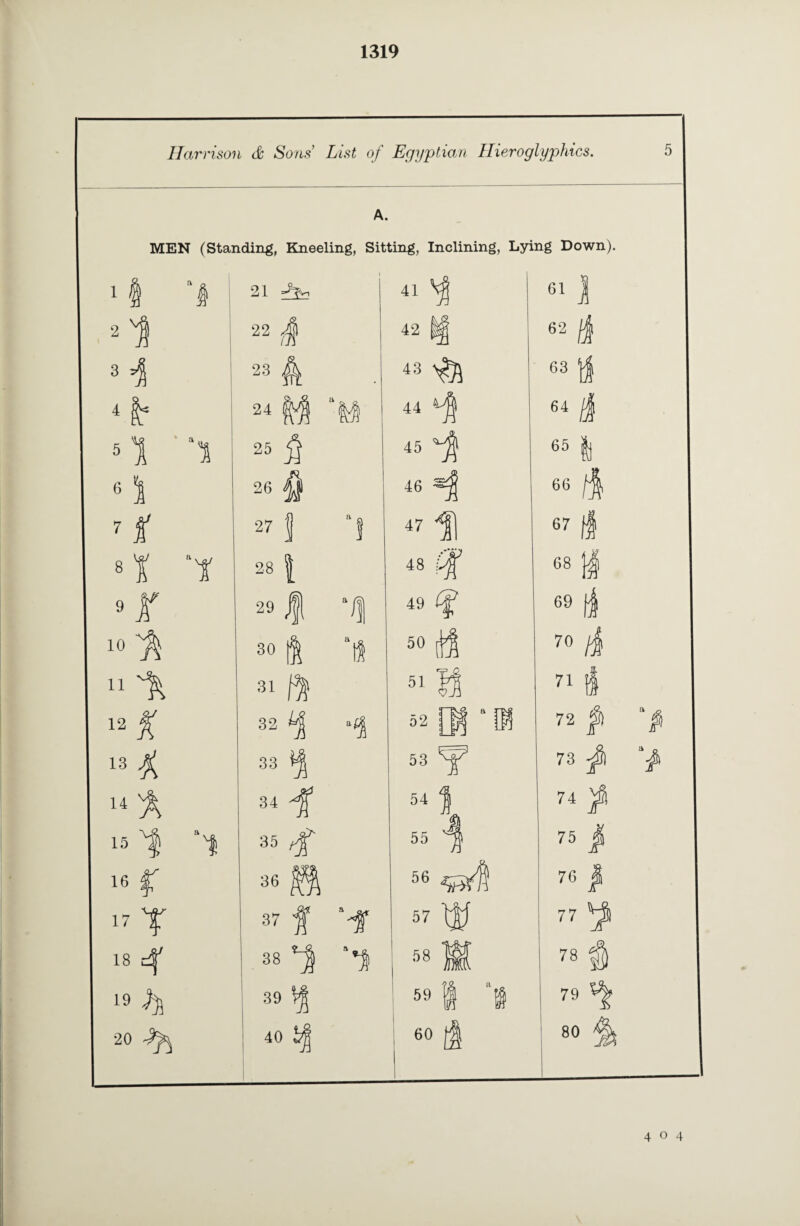 1319
Harrison & Sons' List of Egyptian Hieroglyphics. 5
A.
MEN (Standing, Kneeling, Sitting, Inclining, Lying Down).
1 a 21 41 61
2 22 42 62
3 23 43 63
4 24 a 44 64
5 a 25 45 65
6 26 46 66
7 27 a 47 67
8 a 28 48 68
9 29 a 49 69
10 30 a 50 70
11 31 51 71
12 32 a 52 a 72 a
13 33 53 73 a
14 34 54 74
15 a 35 55 75
16 36 56 76
17 37 a 57 77
18 38 a 58 78
19 39 59 a 79
20 40 60 80
4 O 4